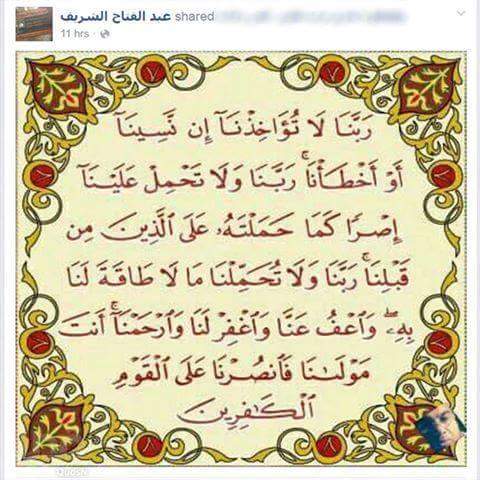 عبد الفتاح الشريف shared
11 hrs ·
رَبَّنَا لَا تُؤَاخِذْنَآ إِن نَّسِينَآ
أَوْ أَخْطَأْنَا ۚ رَبَّنَا وَلَا تَحْمِلْ عَلَيْنَآ
إِصْرًا كَمَا حَمَلْتَهُۥ عَلَى الَّذِينَ مِن
قَبْلِنَا ۚ رَبَّنَا وَلَا تُحَمِّلْنَا مَا لَا طَاقَةَ لَنَا
بِهِۦ ۖ وَاعْفُ عَنَّا وَاغْفِرْ لَنَا وَارْحَمْنَآ ۚ أَنتَ
مَوْلَىٰنَا فَانصُرْنَا عَلَى الْقَوْمِ
الْكَٰفِرِينَ